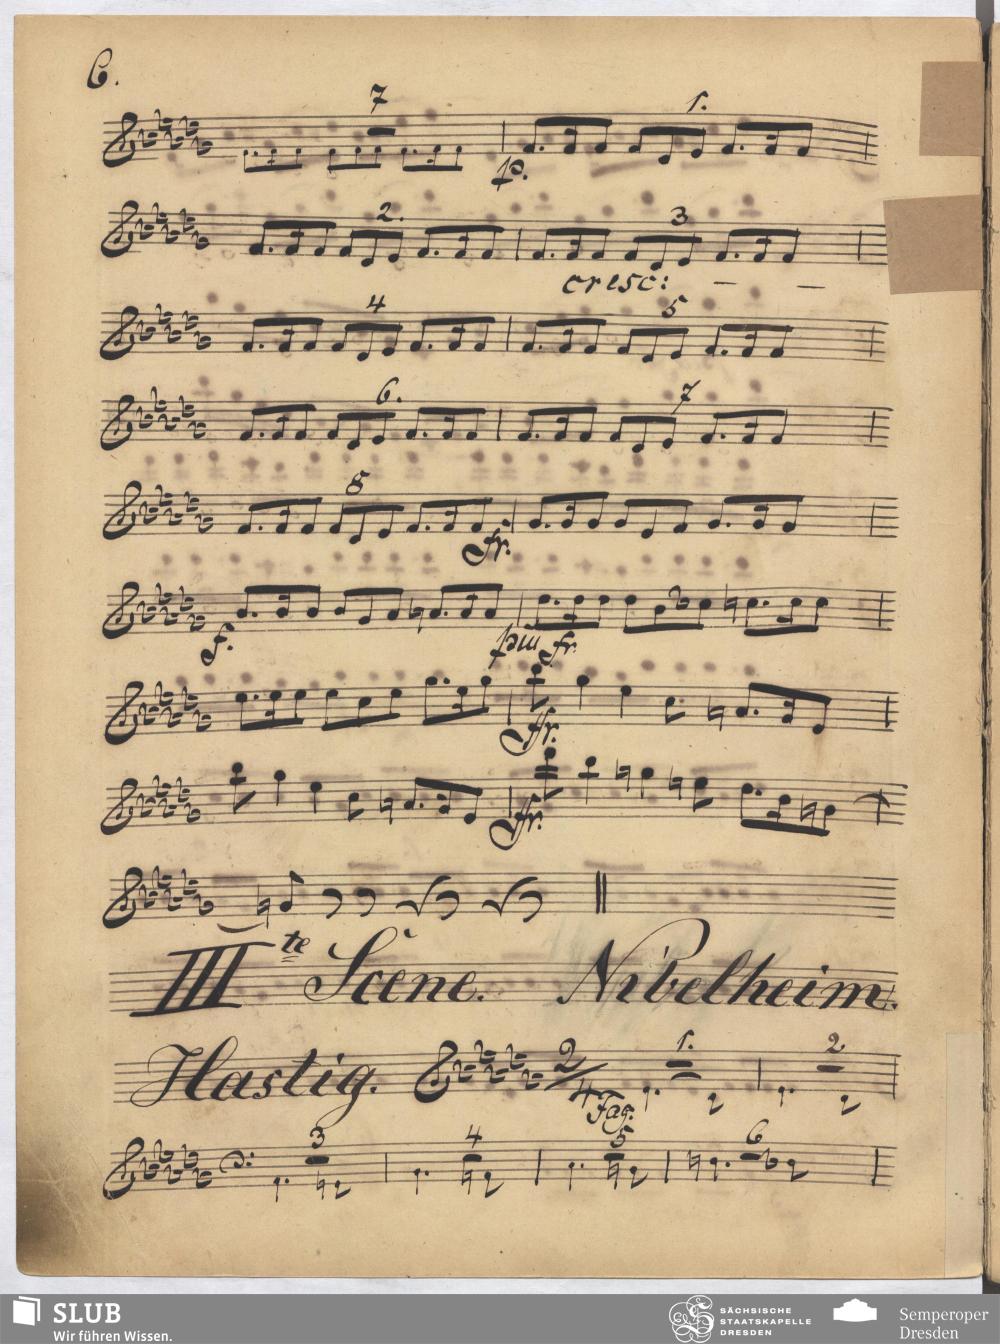 6.
7 1.
p.
2. 3
cresc: – –
4 5
6. 7
8
fr.
f. più fr.
ffr.
ffr.
IIIte Scene. Nibelheim.
Hastig. 2/4 1. 2
Fag.
3 4 5 6
SLUB
Wir führen Wissen.
SÄCHSISCHE
STAATSKAPELLE
DRESDEN
Semperoper
Dresden